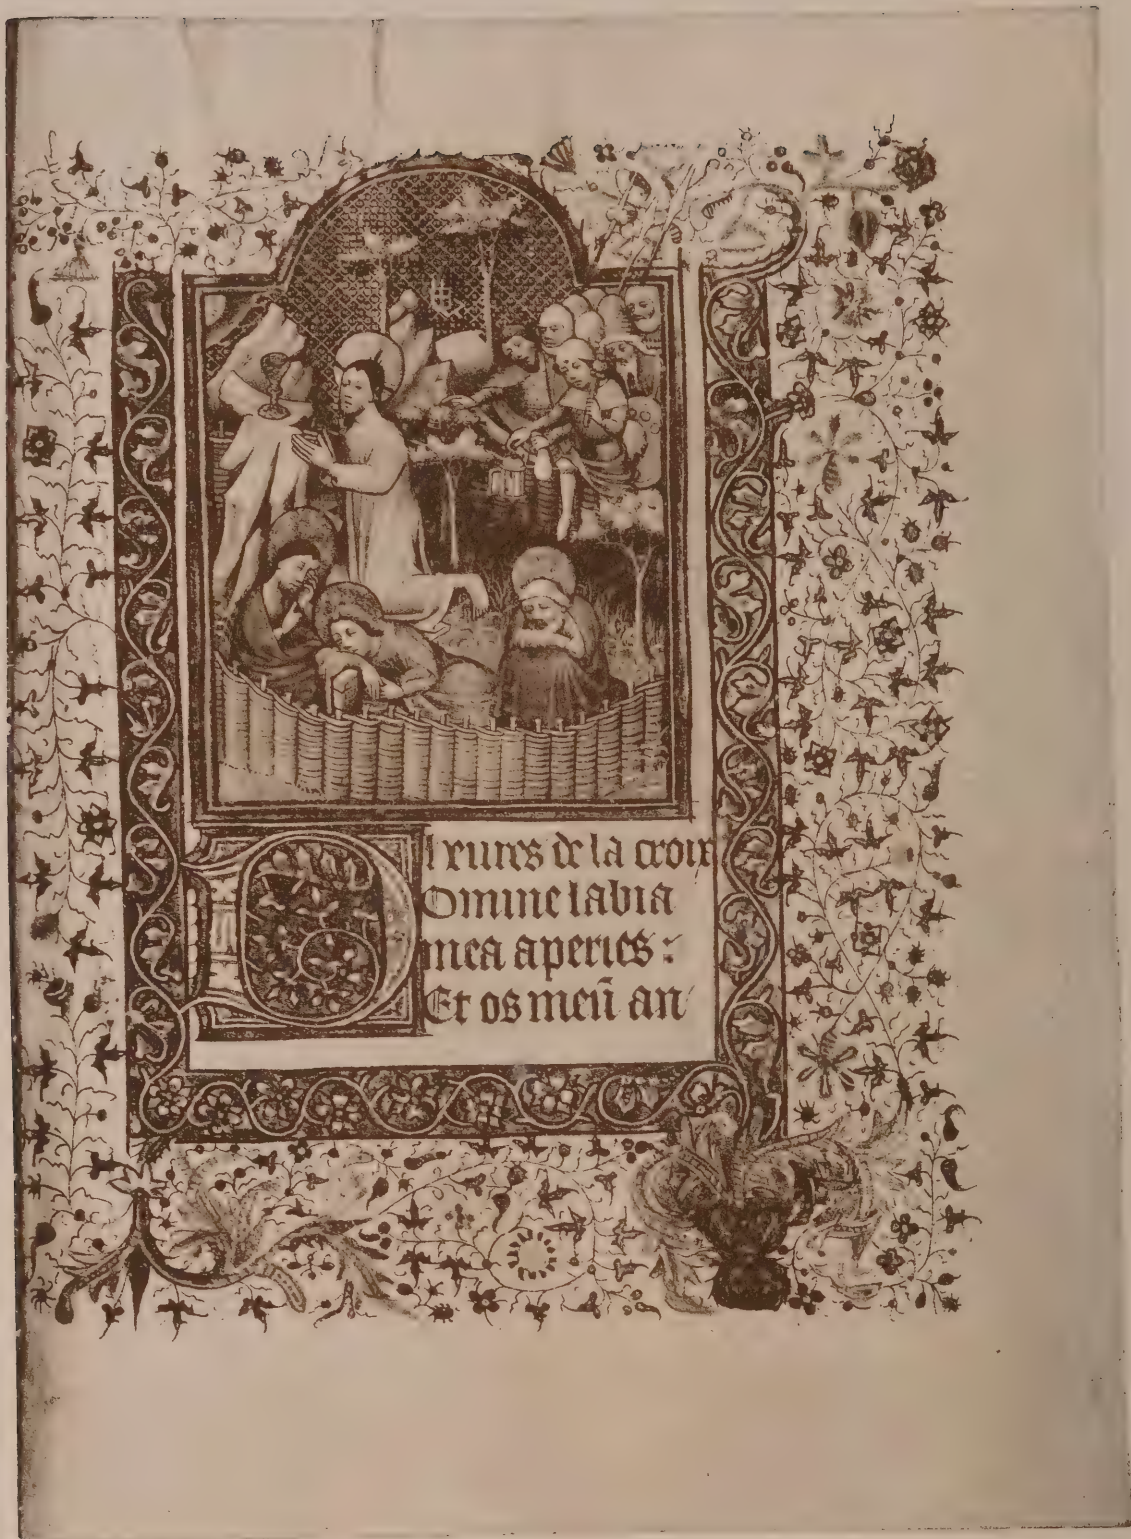 heures de la croix
Domine labia
mea aperies :
Et os meū an